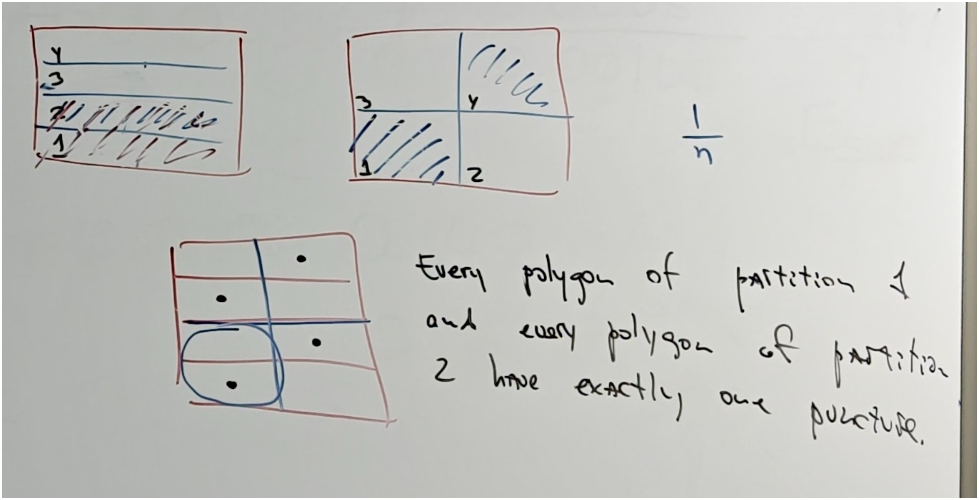 4
3
2
1
3 4
1 2
1
n
Every polygon of partition 1
and every polygon of partition
2 have exactly one puncture.